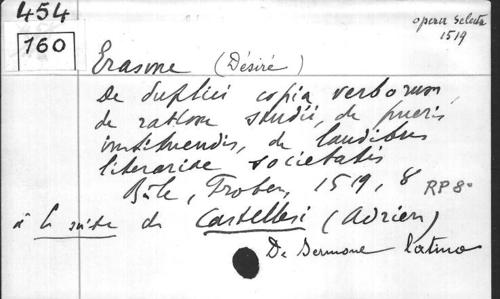 454
160
opera selecta
1519
Erasme (Désiré)
De duplici copia verborum,
de ratione studii, de pueris
instituendis, de laudibus
literariae societatis
Bâle, Froben, 1519, 8
RP 8°
à la suite de Castellesi (Adrien)
De Sermone latino